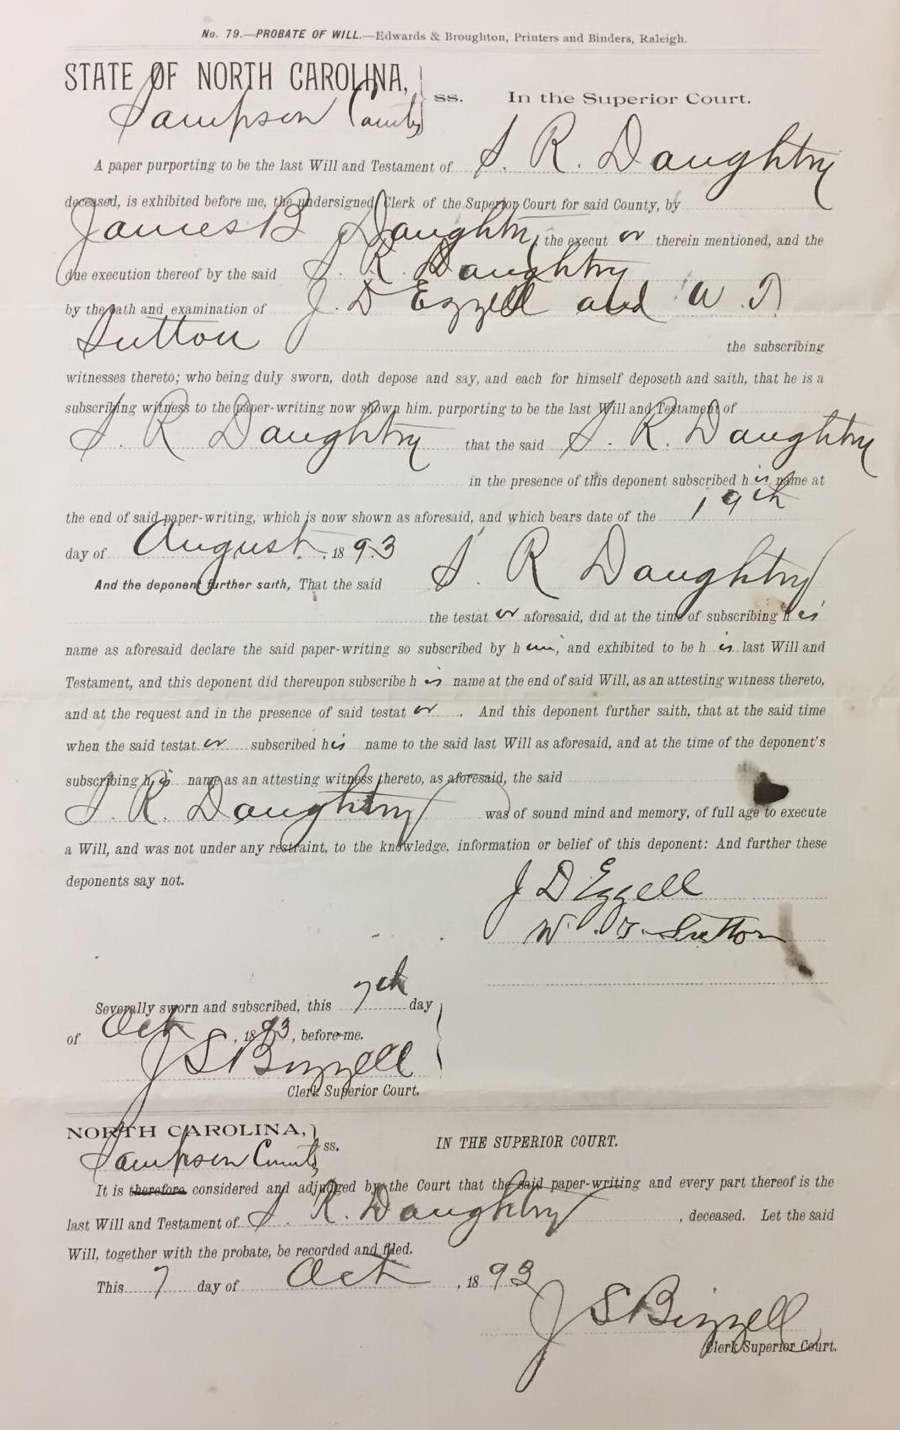 No. 79.—PROBATE OF WILL.—Edwards & Broughton, Printers and Binders, Raleigh.
STATE OF NORTH CAROLINA,
Sampson County } ss. In the Superior Court.
A paper purporting to be the last Will and Testament of S. R. Daughtry
deceased, is exhibited before me, the undersigned Clerk of the Superior Court for said County, by
James B Daughtry, the execut or therein mentioned, and the
due execution thereof by the said S. R. Daughtry
by the oath and examination of J. D Ezzell and W. T.
Sutton the subscribing
witnesses thereto; who being duly sworn, doth depose and say, and each for himself deposeth and saith, that he is a
subscribing witness to the paper-writing now shown him. purporting to be the last Will and Testament of
S. R Daughtry that the said S. R. Daughtry
in the presence of this deponent subscribed h is name at
the end of said paper-writing, which is now shown as aforesaid, and which bears date of the 19th
day of August, 18 93
And the deponent further saith, That the said S. R Daughtry
the testat or aforesaid, did at the time of subscribing h is
name as aforesaid declare the said paper-writing so subscribed by h im, and exhibited to be h is last Will and
Testament, and this deponent did thereupon subscribe h is name at the end of said Will, as an attesting witness thereto,
and at the request and in the presence of said testat or. And this deponent further saith, that at the said time
when the said testat or subscribed h is name to the said last Will as aforesaid, and at the time of the deponent's
subscribing h is name as an attesting witness thereto, as aforesaid, the said
S. R. Daughtry was of sound mind and memory, of full age to execute
a Will, and was not under any restraint, to the knowledge, information or belief of this deponent: And further these
deponents say not.
J D Ezzell
W. T. Sutton
Severally sworn and subscribed, this 7th day
of Oct, 18 93, before me.
J S Bizzell
Clerk Superior Court.
NORTH CAROLINA,
Sampson County } ss. IN THE SUPERIOR COURT.
It is therefore considered and adjudged by the Court that the said paper-writing and every part thereof is the
last Will and Testament of S. R. Daughtry, deceased. Let the said
Will, together with the probate, be recorded and filed.
This 7 day of Oct, 18 93
J S Bizzell
Clerk Superior Court.